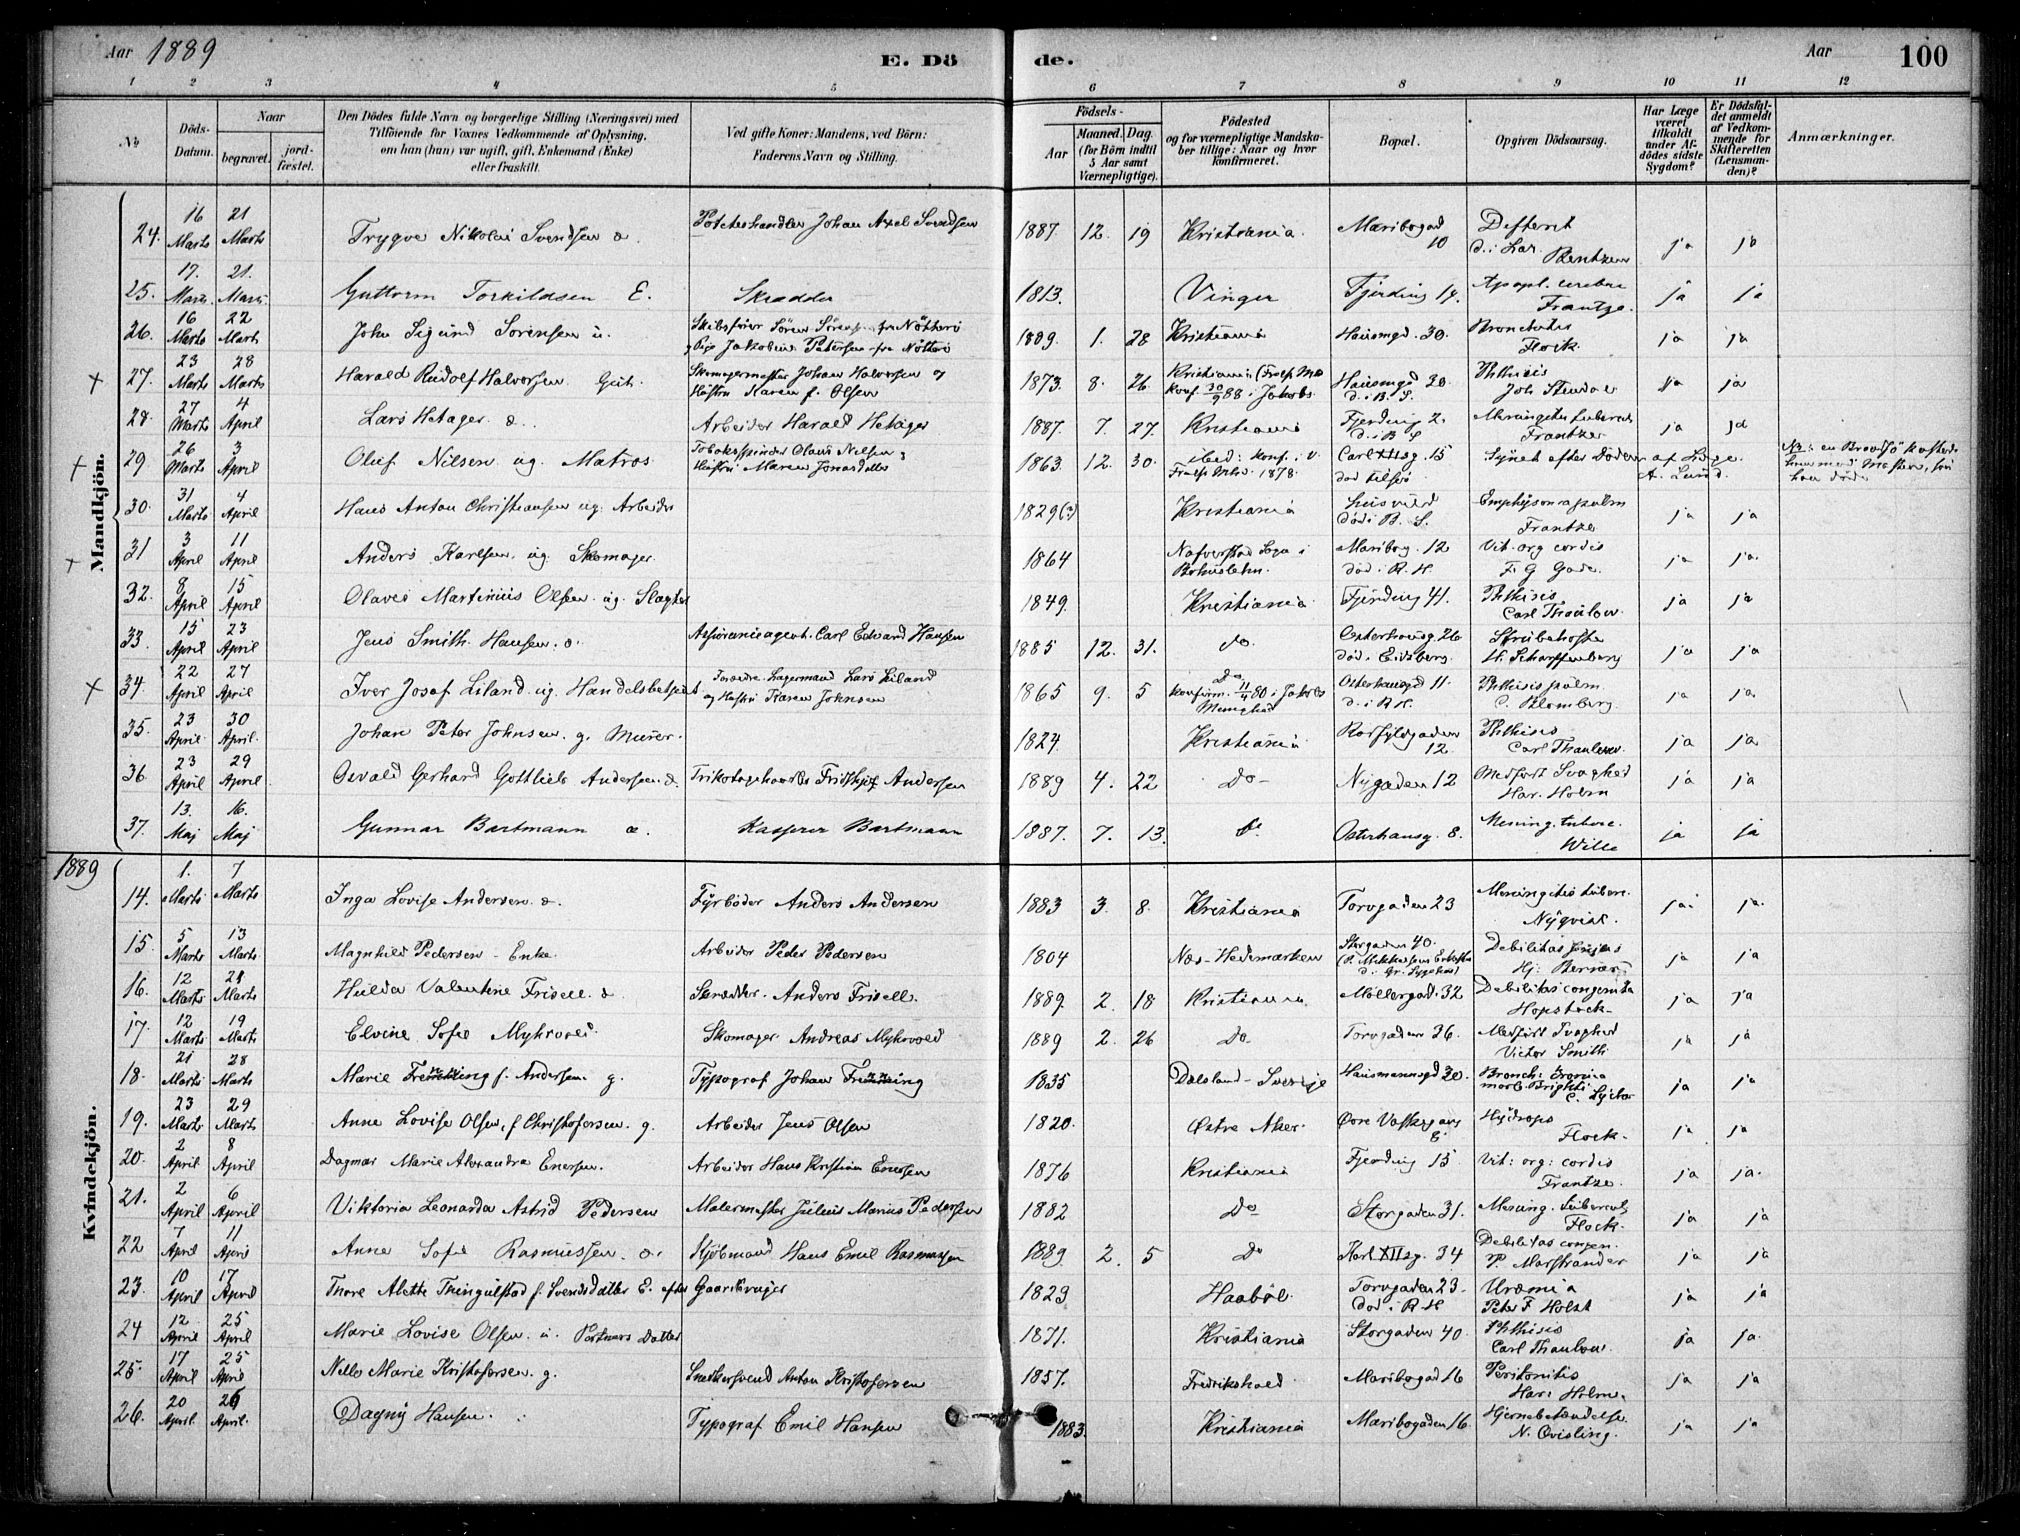 Aar 1889
E. Dö
de.
Aar
100
1 2 3 4 5 6 7 8 9 10 11 12
No
Döds-Datum.
Naar
begravet.
jordfæstet.
Den Dödes fulde Navn og borgerlige Stilling (Næringsvei) med
Tilföiende for Voxnes Vedkommende af Oplysning,
om han (hun) var ugift, gift, Enkemand (Enke)
eller fraskilt.
Ved gifte Koner: Mandens, ved Börn:
Faderens Navn og Stilling.
Födsels-
Aar
Maaned. Dag.
(for Börn indtil
5 Aar samt
Værnepligtige).
Födested
og for værnepligtige Mandska-
ber tillige: Naar og hvor
konfirmeret.
Bopæl.
Opgiven Dödsaarsag.
Har Læge
været
tilkaldt
under Af-
dödes sidste
Sygdom?
Er Dödsfal-
det anmeldt
af Vedkom-
mende for
Skifteretten
(Lensman-
den)?
Anmærkninger.
Mandkjön.
24. 16 Marts 21 Marts Trygve Nikolai Svendsen Johan Axel Svendsen 1887 12. 19 Kristiania Maribogad 10 Difterit Bentzen ja ja
25. 17. Marts 21. Marts Guttorm Torkildsen E. Skrædder 1813. Vinger Fjerding 14. Apopl. cerebri Frantze. ja ja
26. 16 Marts 22 Marts John Sigurd Sörensen u. 1889. 1. 28 Kristiania Hausmgd. 30. Bronchitis Flock. ja ja
27. 23 Marts 28 Marts Harald Rudolf Halvorsen Skomagermester Johan Halvorsen og Hustru Karen f. Olsen 1873. 8. 26 Kristiania Hausmgd 30. Phthisis ja ja
28. 27 Marts 4 April Lars Hetager Arbeider Harald Hetager 1887. 7. 27. Kristiania Fjerding 2. Frantze ja ja
29 26 Marts 3 April Oluf Nilsen ug. Matros Olaus Nilsen 1863. 12. 30. 1878. Carl XIIsg. 15 Synet efter Döden af Læge A. Lund.
30. 31 Marts 4 April Hans Anton Christiansen ug. Arbeider 1829(?) Kristiania död i B. S. Emphysema pulm Frantze ja ja
31 3 April 11 April Anders Karlsen. ug. Skomager. 1864 Maribog. 12 död i R. H. Vit. org cordis F G Gade. ja ja.
32. 8 April 15 April Olaves Martinius Olsen. ug. Slagter 1849. Kristiania Fjerding 41. Phthisis Carl Thaulow. ja ja
33. 15 April 23 April Jens Smith Hansen. Assuranceagent. Carl Edvard Hansen 1885 12. 31. do. Osterhausg 26 Strubehoste ja ja
34. 22 April 27 April Iver Josef Liland ug. Handelsbetjent Lagermand Lars Liland og Hustru Karen Johnsen 1865 9. 5 Do konfirm. Jakobs Menighed Osterhausgd 11. d. i R H. Phthisis pulm. C. Blomberg. ja ja.
35. 23 April 30 April. Johan Peter Johnsen. g. Murer. 1824. Kristiania 12. Phthisis Carl Thaulow. ja ja
36. 23 April 29 April Osvald Gerhard Gottlieb Andersen. Fridthjof Andersen 1889 4. 22 Do Nygaden 12 Medfödt Svaghed Har. Holm ja ja
37. 13. Maj 16. Maj Gunnar Bartmann Kasperer Bartmann 1887. 7. 13. do Osterhausg. 8. Mening. tuberc. Wille ja ja
1889
Kvindekjön.
14. 1. Marts 7 Marts Inga Lovise Andersen. Fyrböder Anders Andersen 1883 3. 8. Kristiania Torvgaden 23 Meningitis tuberc. Nyqvist. ja ja.
15. 5 Marts 13 Marts Magnhild Pedersen Enke Arbeider Peder Pedersen 1804 Næs-Hedemarken Storgaden 40. Debilitas senilis ja ja
16. 12 Marts 21 Marts Hulda Valentine Frisell. Skrædder. Anders Frisell. 1889. 2. 18 Kristiania Möllergad. 32 Debilitas congenita Hopstock ja ja
17. 12 Marts 19 Marts Elvine Sofie Myhrvold. Skomager. Andreas Myhrvold 1889 2. 26 Do Torvgaden 36. Medfödt Svaghed Victor Smith ja ja
18. 21 Marts 28 Marts Marie f. Andersen. g. Typograf Johan 1835 Dalsland-Sverige Hausmannsgd 20. ja ja
19. 23 Marts 29 Marts Anne Lovise Olsen, f Christofersen. g. Arbeider Jens Olsen 1820. Østre Aker. Hydrops Flock. ja ja
20. 2 April 8 April Dagmar Marie Alexandra Enersen. Arbeider Hans Kristian Enersen 1876 Kristiania Fjerding 15 Vit: org: cordis Frantze. ja ja.
21. 2 April 6 April Viktoria Leonarda Astrid Pedersen Malermester Julius Marius Pedersen 1882 Do Storgaden 31. Mening. tubercul. Flock. ja ja
22 7 April 11 April Anne Sofie Rasmussen. Kjöbmand Hans Emil Rasmussen 1889. 2. 5 Do Karl XIIsg. 34 Debilitas congen. P. Marstrander ja ja
23. 10 April 17 April Thore Alette Tringulstad f. Svendsdatter E. efter Gaardbruger 1829 Haaböl. Torvgaden 23 död i R H Uræmia Peter F Holst ja ja
24 12. April 25 April Marie Lovise Olsen. u. Portners Datter 1871. Kristiania Storgaden 40. Phthisis Carl Thaulow. ja ja.
25. 17 April 25 April Nelly Marie Kristofersen. g. Snedkersvend Anton Kristofersen 1857. Fredrikshald Maribogad 16 Peritonitis Har. Holm. ja ja
26. 20 April. 26 April. Dagny Hansen. Typograf Emil Hansen 1883. Kristiania Maribogaden 16. Hjernebetændelse. N. Qvisling. ja ja